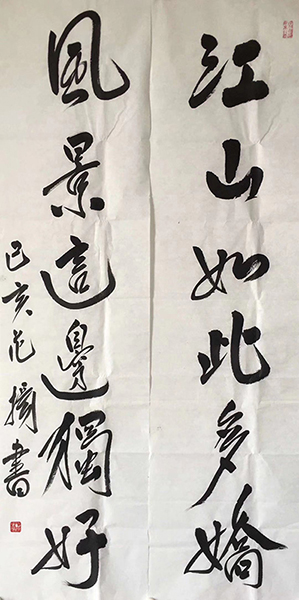 江山如此多嬌
風景這邊獨好
己亥范揚書